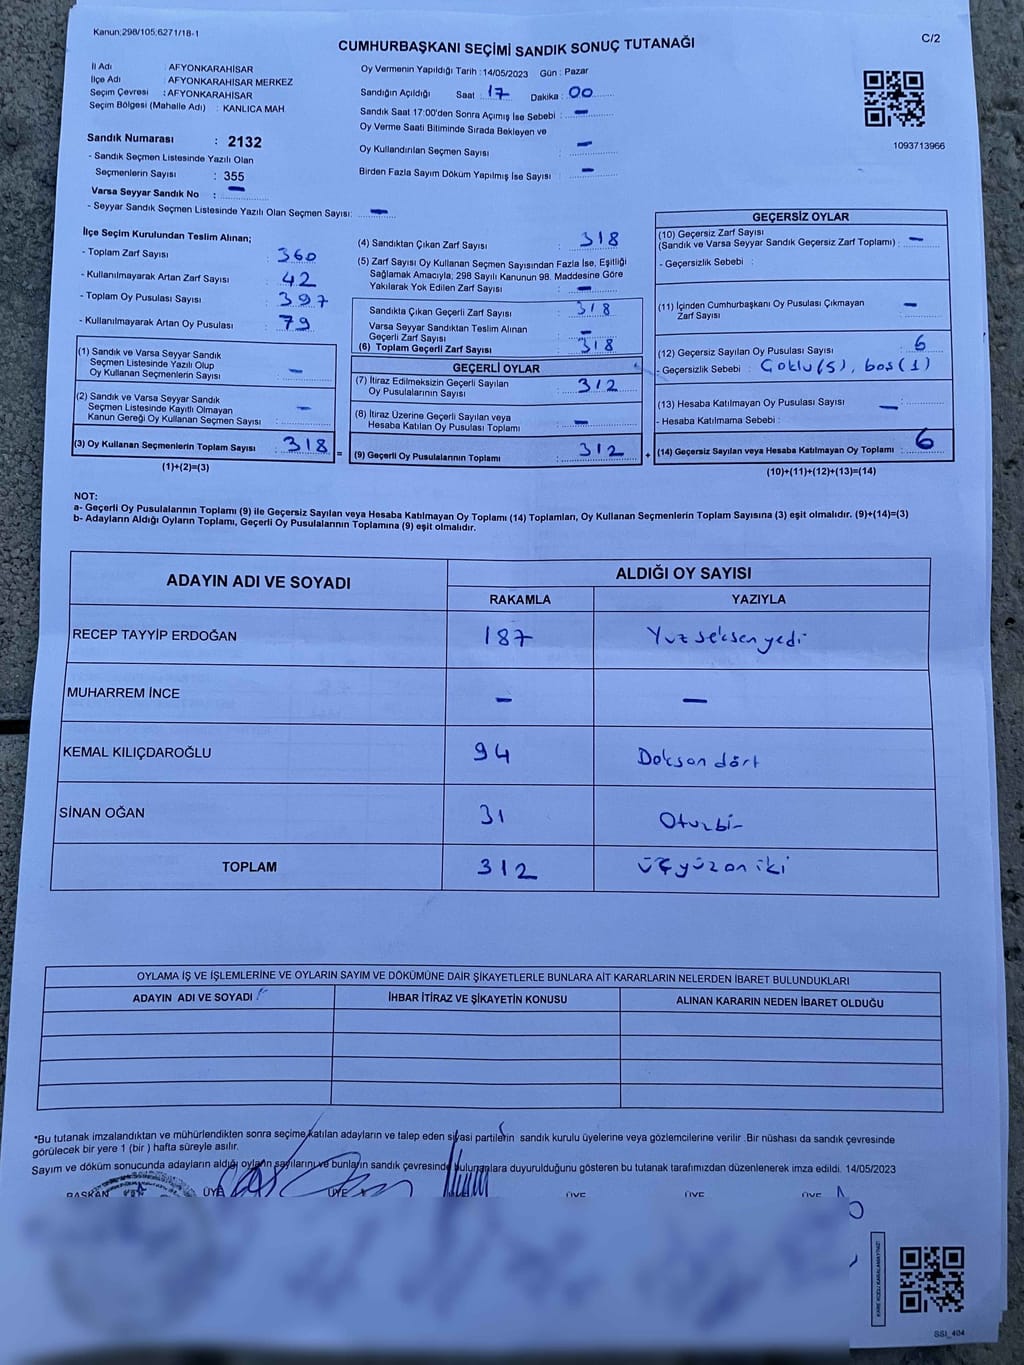 Kanun;298/105;6271/18-1
C/2
CUMHURBAŞKANI SEÇİMİ SANDIK SONUÇ TUTANAĞI
İl Adı : AFYONKARAHİSAR
İlçe Adı : AFYONKARAHİSAR MERKEZ
Seçim Çevresi : AFYONKARAHİSAR
Seçim Bölgesi (Mahalle Adı) : KANLICA MAH
Sandık Numarası : 2132
- Sandık Seçmen Listesinde Yazılı Olan
Seçmenlerin Sayısı : 355
Varsa Seyyar Sandık No : —
- Seyyar Sandık Seçmen Listesinde Yazılı Olan Seçmen Sayısı: —
Oy Vermenin Yapıldığı Tarih : 14/05/2023 Gün : Pazar
Sandığın Açıldığı Saat : 17 Dakika : 00
Sandık Saat 17:00'den Sonra Açımış İse Sebebi : —
Oy Verme Saati Bitiminde Sırada Bekleyen ve
Oy Kullandırılan Seçmen Sayısı : —
Birden Fazla Sayım Döküm Yapılmış İse Sayısı : —
1093713966
İlçe Seçim Kurulundan Teslim Alınan;
- Toplam Zarf Sayısı : 360
- Kullanılmayarak Artan Zarf Sayısı : 42
- Toplam Oy Pusulası Sayısı : 397
- Kullanılmayarak Artan Oy Pusulası : 79
(1) Sandık ve Varsa Seyyar Sandık
Seçmen Listesinde Yazılı Olup
Oy Kullanan Seçmenlerin Sayısı : —
(2) Sandık ve Varsa Seyyar Sandık
Seçmen Listesinde Kayıtlı Olmayan
Kanun Gereği Oy Kullanan Seçmen Sayısı : —
(3) Oy Kullanan Seçmenlerin Toplam Sayısı : 318
(1)+(2)=(3)
(4) Sandıktan Çıkan Zarf Sayısı : 318
(5) Zarf Sayısı Oy Kullanan Seçmen Sayısından Fazla İse, Eşitliği
Sağlamak Amacıyla; 298 Sayılı Kanunun 98. Maddesine Göre
Yakılarak Yok Edilen Zarf Sayısı : —
Sandıkta Çıkan Geçerli Zarf Sayısı : 318
Varsa Seyyar Sandıktan Teslim Alınan
Geçerli Zarf Sayısı : —
(6) Toplam Geçerli Zarf Sayısı : 318
GEÇERLİ OYLAR
(7) İtiraz Edilmeksizin Geçerli Sayılan
Oy Pusulalarının Sayısı : 312
(8) İtiraz Üzerine Geçerli Sayılan veya
Hesaba Katılan Oy Pusulası Toplamı : —
= (9) Geçerli Oy Pusulalarının Toplamı : 312
GEÇERSİZ OYLAR
(10) Geçersiz Zarf Sayısı
(Sandık ve Varsa Seyyar Sandık Geçersiz Zarf Toplamı) : —
- Geçersizlik Sebebi :
(11) İçinden Cumhurbaşkanı Oy Pusulası Çıkmayan
Zarf Sayısı : —
(12) Geçersiz Sayılan Oy Pusulası Sayısı : 6
- Geçersizlik Sebebi : Çoklu(5), boş(1)
(13) Hesaba Katılmayan Oy Pusulası Sayısı : —
- Hesaba Katılmama Sebebi :
+ (14) Geçersiz Sayılan veya Hesaba Katılmayan Oy Toplamı : 6
(10)+(11)+(12)+(13)=(14)
NOT:
a- Geçerli Oy Pusulalarının Toplamı (9) ile Geçersiz Sayılan veya Hesaba Katılmayan Oy Toplamı (14) Toplamları, Oy Kullanan Seçmenlerin Toplam Sayısına (3) eşit olmalıdır. (9)+(14)=(3)
b- Adayların Aldığı Oyların Toplamı, Geçerli Oy Pusulalarının Toplamına (9) eşit olmalıdır.
ADAYIN ADI VE SOYADI ALDIĞI OY SAYISI
RAKAMLA YAZIYLA
RECEP TAYYİP ERDOĞAN 187 Yüzseksenyedi
MUHARREM İNCE — —
KEMAL KILIÇDAROĞLU 94 Doksan dört
SİNAN OĞAN 31 Otuzbir
TOPLAM 312 üçyüzoniki
OYLAMA İŞ VE İŞLEMLERİNE VE OYLARIN SAYIM VE DÖKÜMÜNE DAİR ŞİKAYETLERLE BUNLARA AİT KARARLARIN NELERDEN İBARET BULUNDUKLARI
ADAYIN ADI VE SOYADI İHBAR İTİRAZ VE ŞİKAYETİN KONUSU ALINAN KARARIN NEDEN İBARET OLDUĞU
*Bu tutanak imzalandıktan ve mühürlendikten sonra seçime katılan adayların ve talep eden siyasi partilerin sandık kurulu üyelerine veya gözlemcilerine verilir .Bir nüshası da sandık çevresinde
görülecek bir yere 1 (bir ) hafta süreyle asılır.
Sayım ve döküm sonucunda adayların aldığı oyların sayılarını ve bunların sandık çevresinde bulunanlara duyurulduğunu gösteren bu tutanak tarafımızdan düzenlenerek imza edildi. 14/05/2023
BAŞKAN ÜYE ÜYE ÜYE ÜYE ÜYE
SSI_404